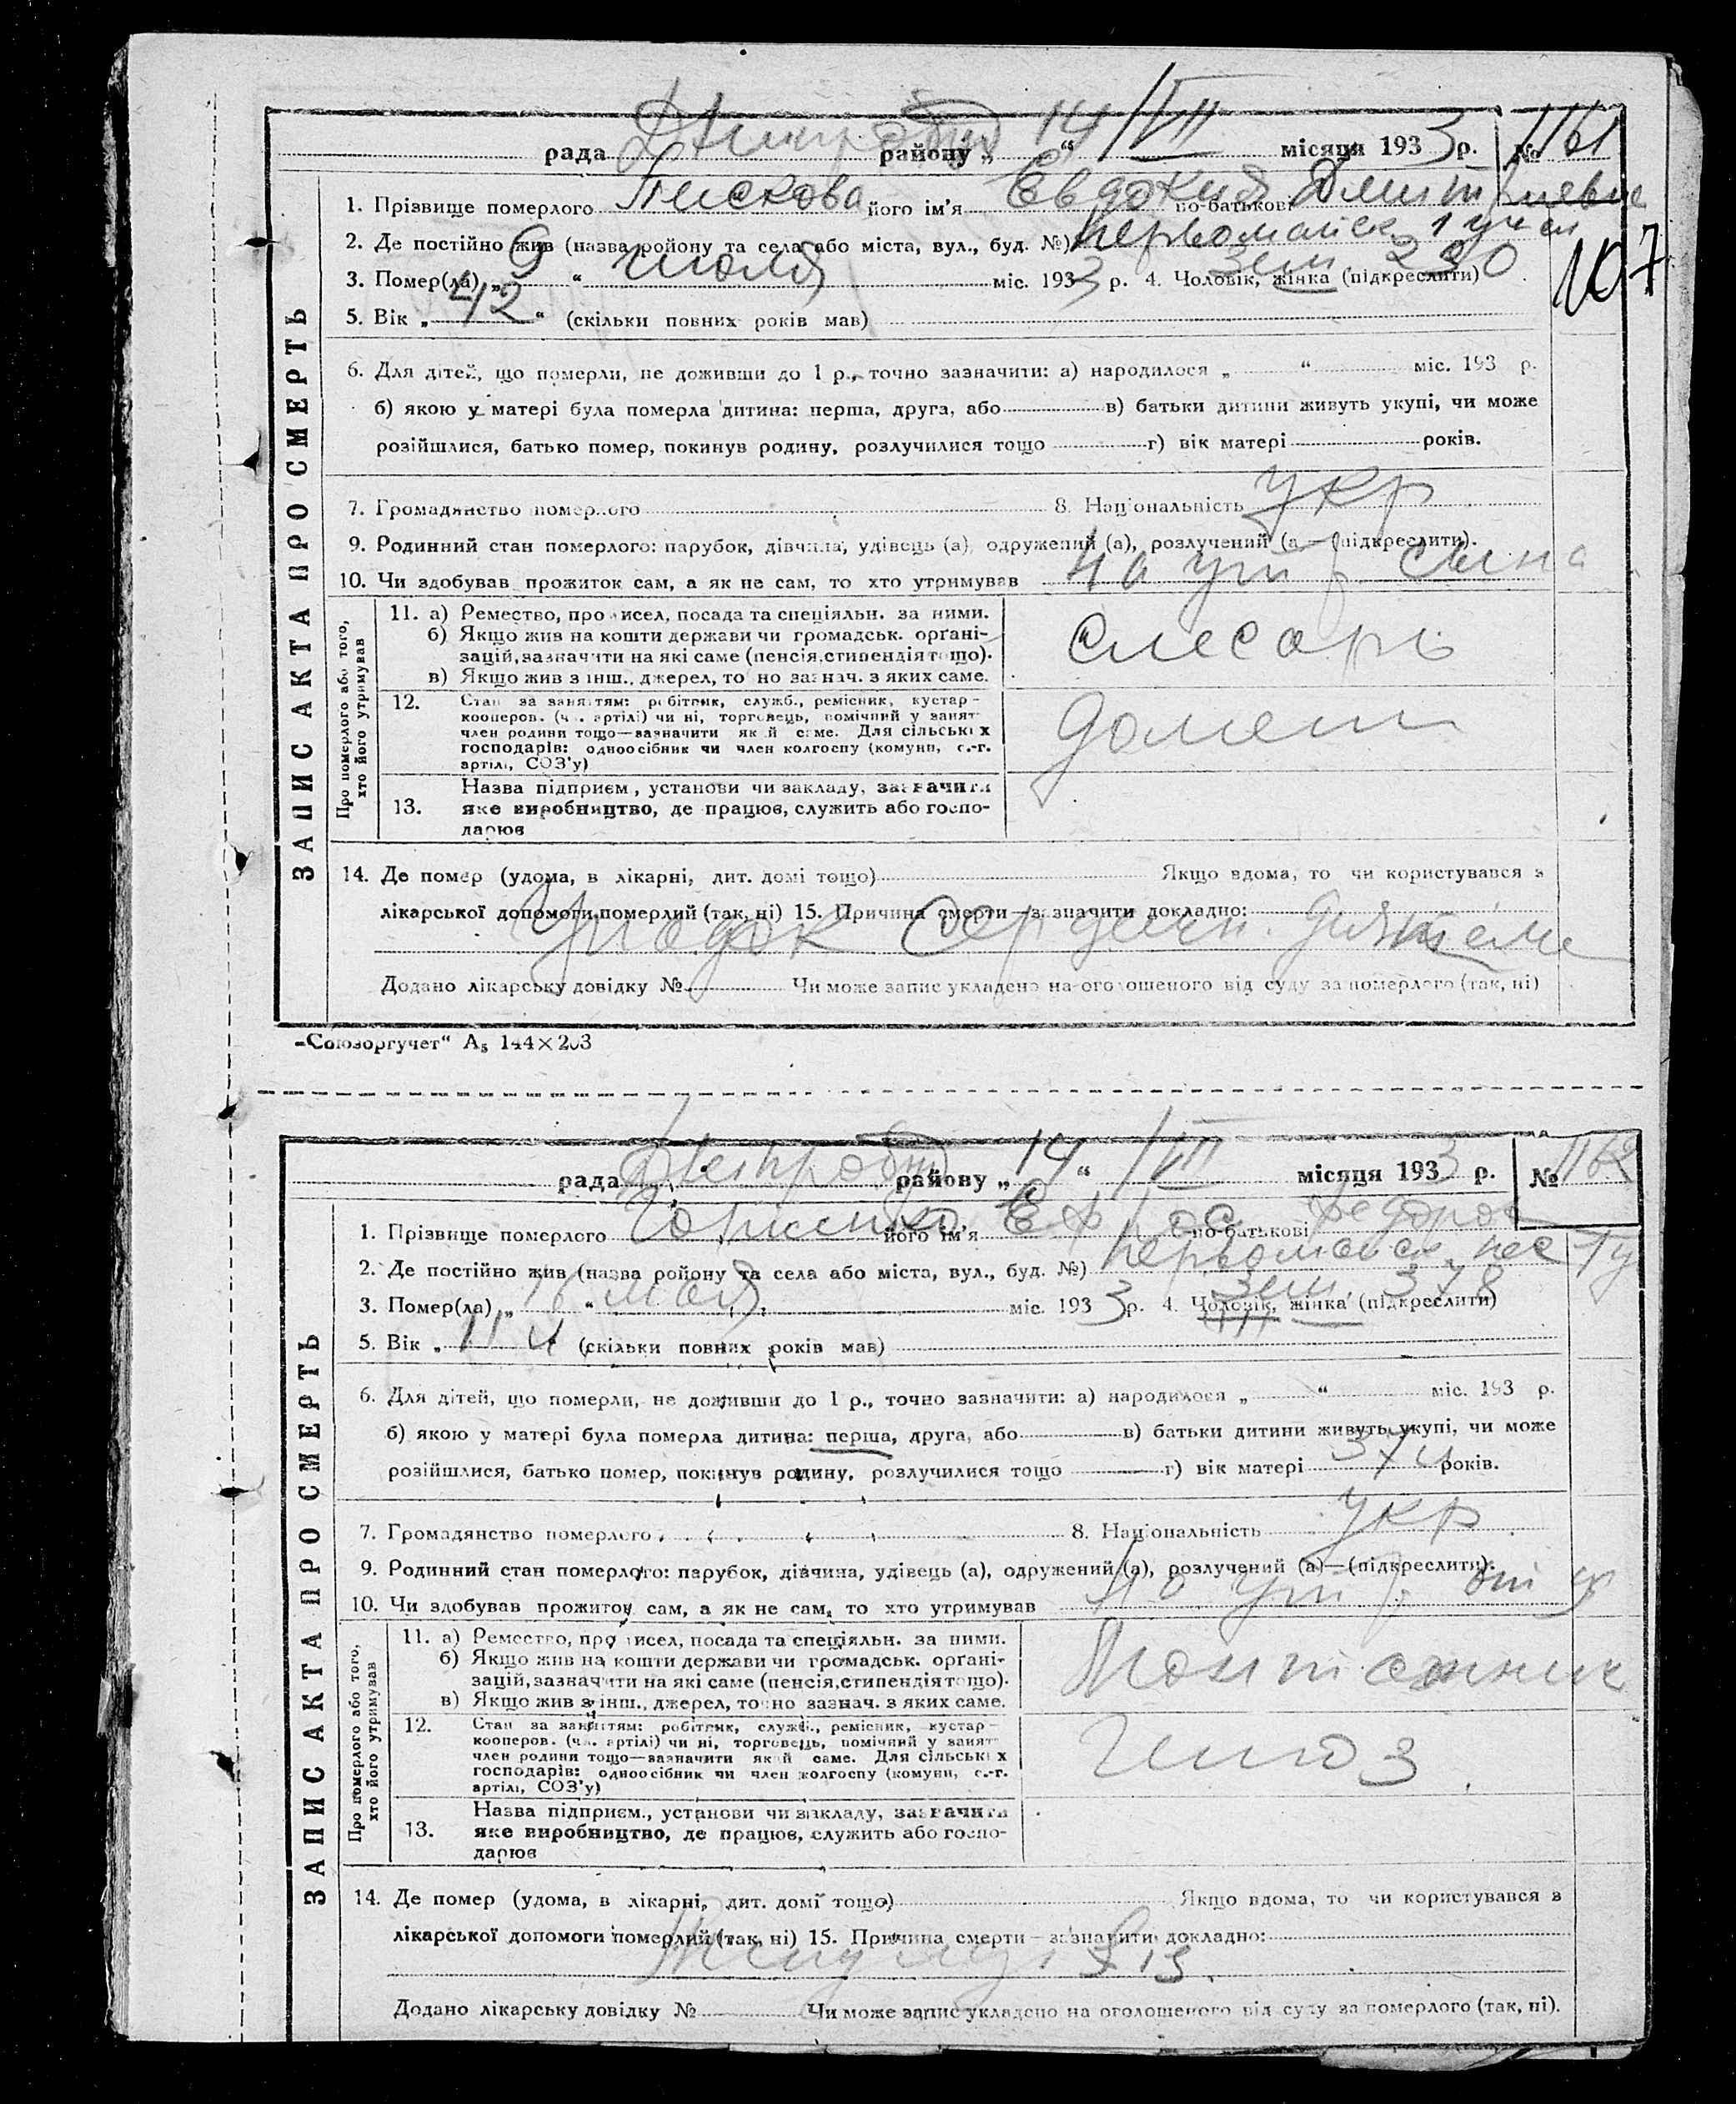 рада Днипробуд району „ 14 “ /VII місяця 1933 р. № 1161
1. Прізвище померлого Пискова його ім’я Евдокия по-батькові Дмитриевна
2. Де постійно жив (назва ройону та села або міста, вул., буд. №) Первомайск. 1 уч
107
3. Помер(ла) „ 9 “ июля міс. 1933 р. 4. Чоловік, жінка (підкреслити)
зем 230
5. Вік „ 42 “ (скільки повних років мав)
6. Для дітей, що померли, не доживши до 1 р., точно зазначити: а) народилося „ “ міс. 193 р.
б) якою у матері була померла дитина: перша, друга, або в) батьки дитини живуть укупі, чи може
розійшлися, батько помер, покинув родину, розлучилися тощо г) вік матері років.
7. Громадянство померлого 8. Національність укр
9. Родинний стан померлого: парубок, дівчина, удівець (а), одружений (а), розлучений (а — (підкреслити).
10. Чи здобував прожиток сам, а як не сам, то хто утримував на ижд сына
ЗАПИС АКТА ПРО СМЕРТЬ
Про померлого або того, хто його утримував
11. а) Ремество, промисел, посада та спеціяльн. за ними.
б) Якщо жив на кошти держави чи громадськ. орґані-
зацій, зазначити на які саме (пенсія, стипендія тощо).
в) Якщо жив з інш., джерел, точно зазнач. з яких саме.
слесарь
12. Стан за заняттям: робітник, служб., ремісник, кустар—
кооперов. (чл. артілі) чи ні, торговець, помічний у занят.
член родини тощо—зазначити який саме. Для сільських
господарів: одноосібник чи член колгоспу (комуни, с.-г.
артілі, СОЗ’у)
13. Назва підприєм., установи чи закладу, зазначити
яке виробництво, де працює, служить або госпо-
дарює
14. Де помер (удома, в лікарні, дит. домі тощо) Якщо вдома, то чи користувався з
лікарської допомоги померлий (так, ні) 15. Причина смерти—зазначити докладно:
Упадок сердечн. деятельн
Додано лікарську довідку № Чи може запис укладено на оголошеного від суду за померлого (так, ні)
„Союзоргучет“ А₅ 144×203
рада Днепробуд району „ 14 “ /VII місяця 1933 р. № 1162
1. Прізвище померлого його ім’я по-батькові Федоров
2. Де постійно жив (назва ройону та села або міста, вул., буд. №) Первомайск. пос
3. Помер(ла) „ “ мая міс. 1933 р. 4. Чоловік, жінка (підкреслити)
зем. 378
5. Вік „ 11 “ (скільки повних років мав)
6. Для дітей, що померли, не доживши до 1 р., точно зазначити: а) народилося „ “ міс. 193 р.
б) якою у матері була померла дитина: перша, друга, або в) батьки дитини живуть укупі, чи може
розійшлися, батько помер, покинув родину, розлучилися тощо г) вік матері 37 років.
7. Громадянство померлого 8. Національність укр
9. Родинний стан померлого: парубок, дівчина, удівець (а), одружений (а), розлучений (а)—(підкреслити).
10. Чи здобував прожиток сам, а як не сам, то хто утримував на ижд отца
ЗАПИС АКТА ПРО СМЕРТЬ
Про померлого або того, хто його утримував
11. а) Ремество, промисел, посада та спеціяльн. за ними.
б) Якщо жив на кошти держави чи громадськ. орґані-
зацій, зазначити на які саме (пенсія, стипендія тощо).
в) Якщо жив з інш., джерел, точно зазнач. з яких саме.
Монтажник
12. Стан за заняттям: робітник, служб., ремісник, кустар—
кооперов. (чл. артілі) чи ні, торговець, помічний у занят.
член родини тощо—зазначити який саме. Для сільських
господарів: одноосібник чи член колгоспу (комуни, с.-г.
артілі, СОЗ’у)
Шлюз
13. Назва підприєм., установи чи закладу, зазначити
яке виробництво, де працює, служить або госпо-
дарює
14. Де помер (удома, в лікарні, дит. домі тощо) Якщо вдома, то чи користувався з
лікарської допомоги померлий (так, ні) 15. Причина смерти—зазначити докладно:
Додано лікарську довідку № Чи може запис укладено на оголошеного від суду за померлого (так, ні).